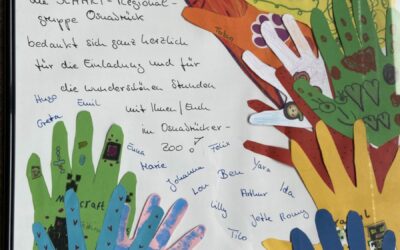 die SMART-Regional-
gruppe Osnabrück
bedankt sich ganz herzlich
für die Einladung und für
die wunderschönen Stunden
mit Ihnen/Euch
im Osnabrücker-
Zoo!
Hugo
Emil
Greta
Emma
Felix
Marie
Johanna
Ben
Yara
Lou
Arthur
Ida
Lilly
Jette
Romy
Tilo
Tobias
craft